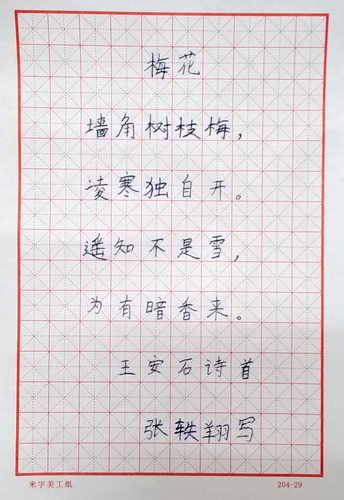 梅花
墙角树枝梅，
凌寒独自开。
遥知不是雪，
为有暗香来。
王安石诗首
张轶翔写
米字美工纸 204-29